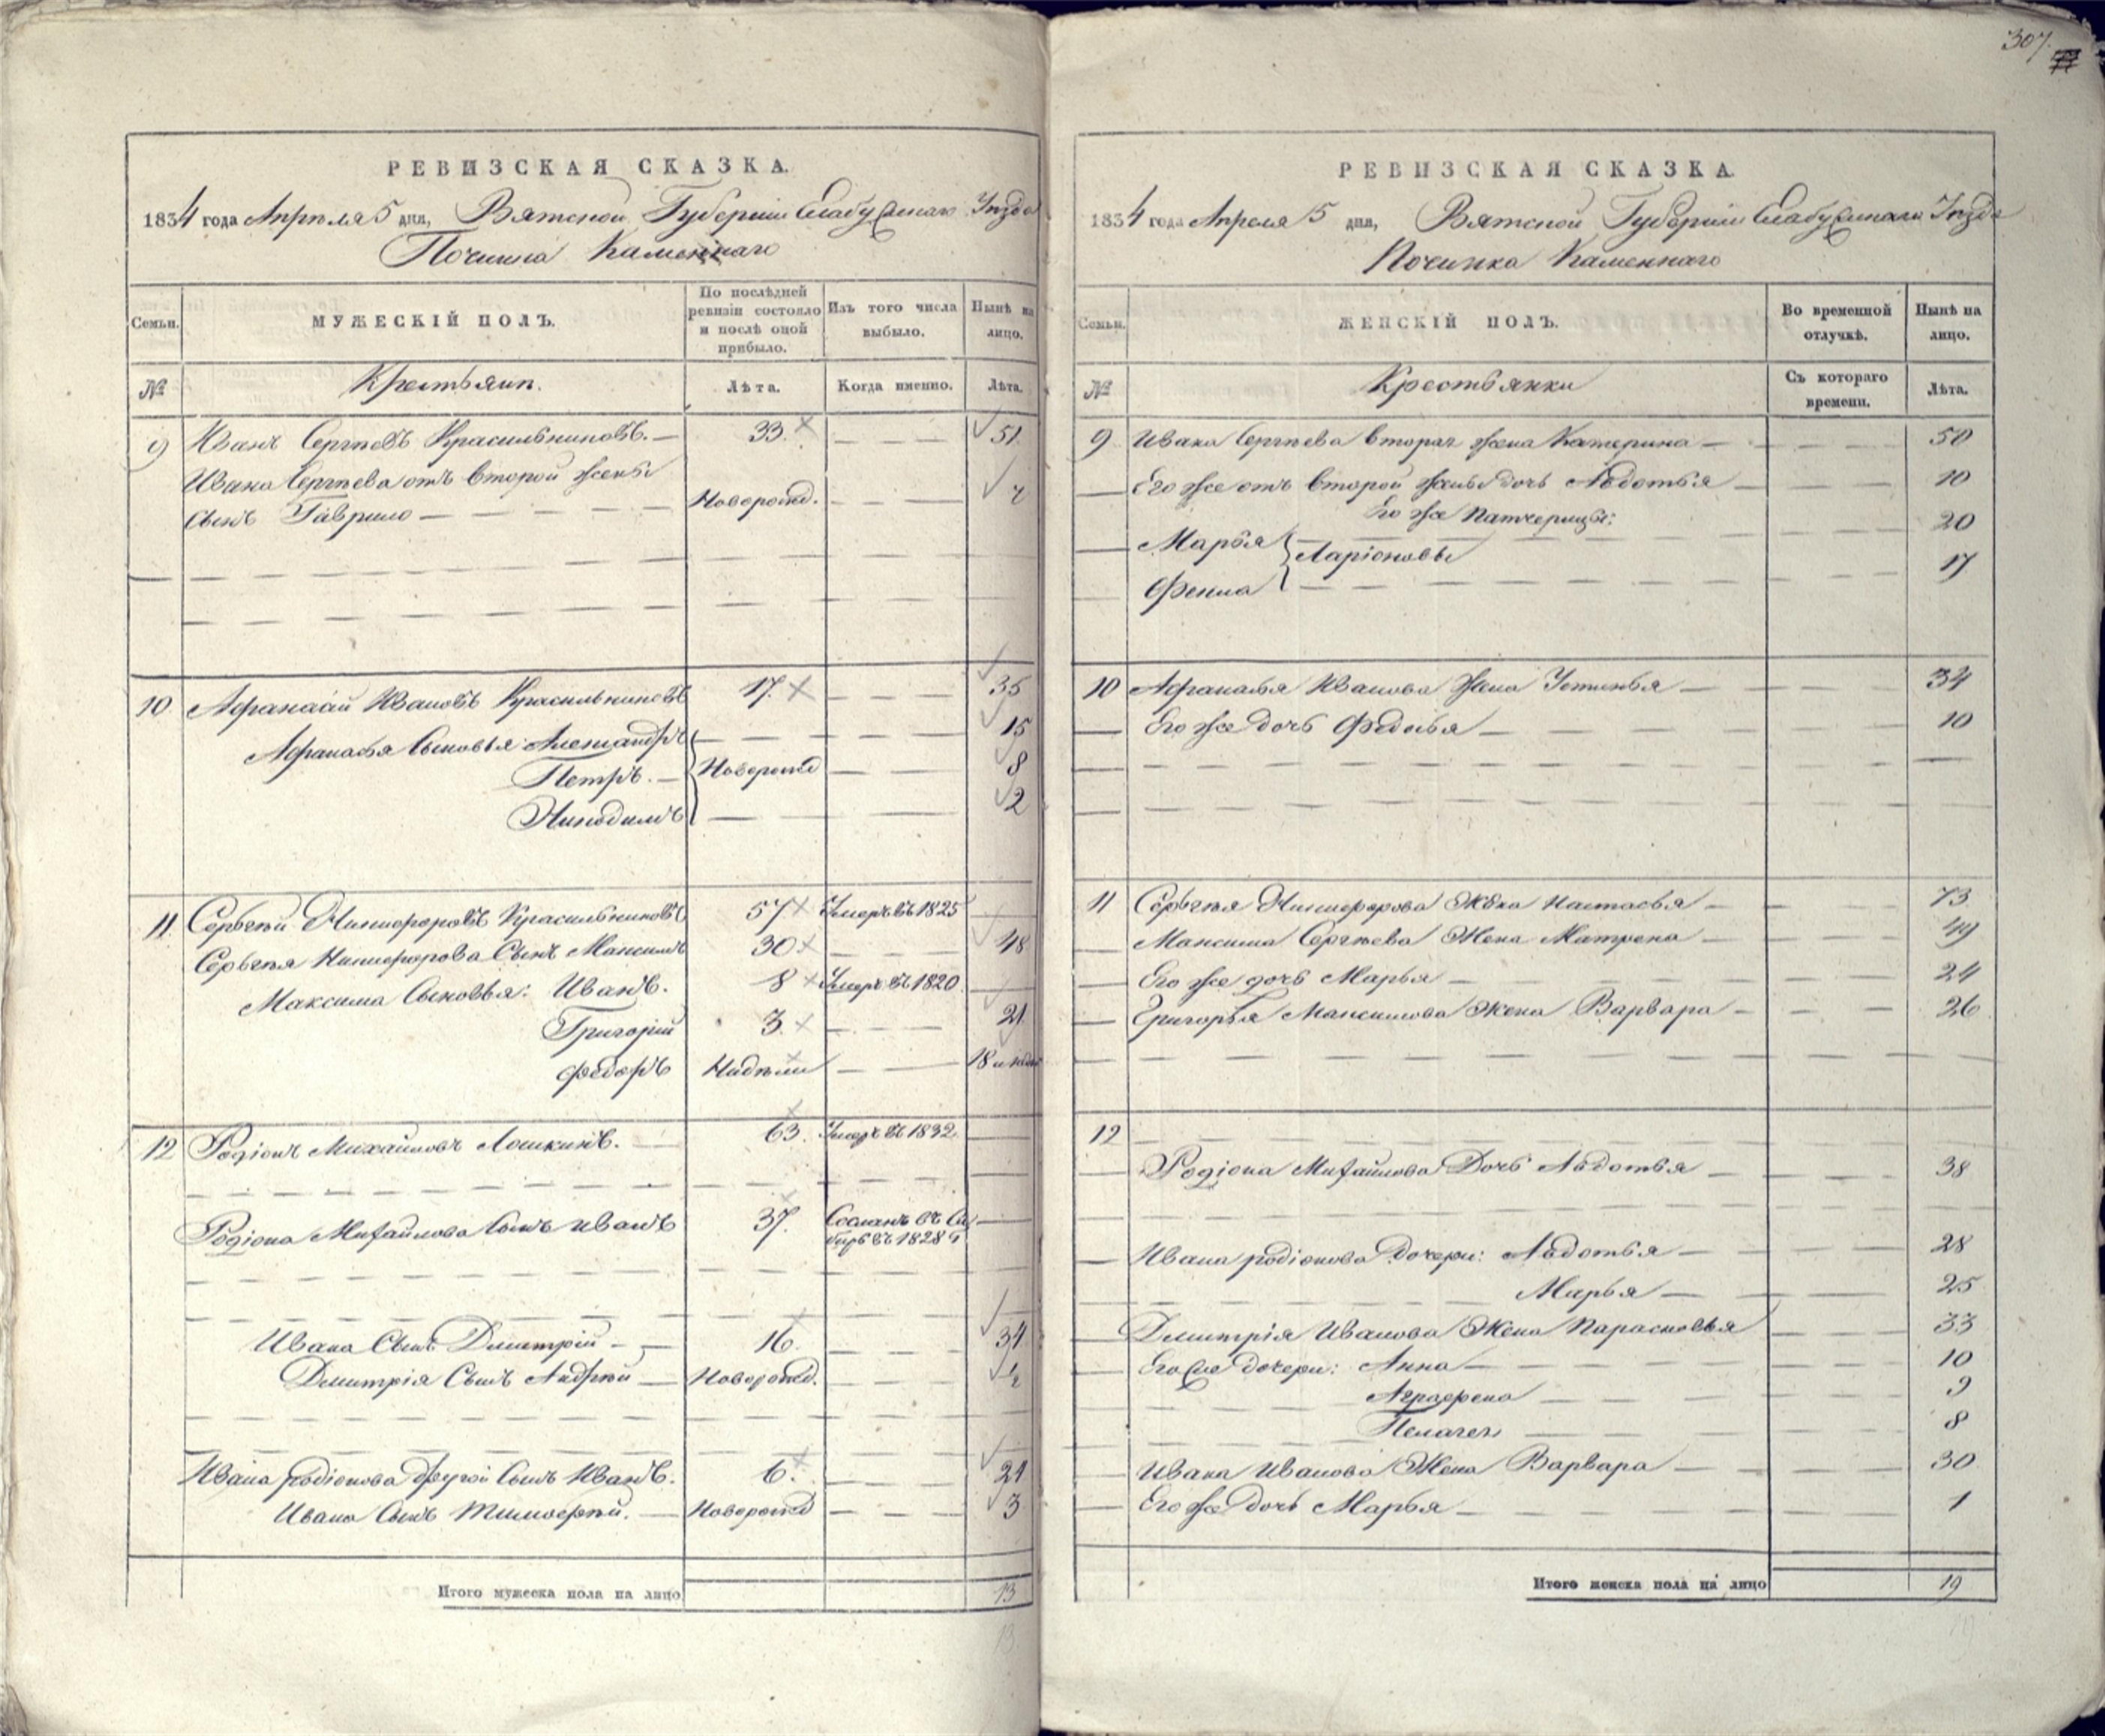 307.
РЕВИЗСКАЯ СКАЗКА.
1834 года Апреля 5 дня, Вятской Губернии Елабужскаго Уезда
Починка Каменнаго
Семьи.
МУЖЕСКІЙ ПОЛЪ.
По послѣдней ревизіи состояло и послѣ оной прибыло.
Изъ того числа выбыло.
Нынѣ на лицо.
№ Крестьяин. Лѣта. Когда именно. Лѣта.
9 Иванъ Сергѣевъ Красильниковъ. 33. 51.
Ивана Сергѣева отъ второй жены
сынъ Гаврило Новорожд.
10 Афанасий Ивановъ Красильниковъ 17. 35
Афанасья Сыновья: Александръ 15
Петръ. Новорожд 8
Никодимъ 2
11 Сергѣй Никифоровъ Красильниковъ 57 Умеръ въ 1825
Сергѣя Никифорова Сынъ Максимъ 30 48
Максима Сыновья: Иванъ. 8 Умеръ въ 1820.
Григорій 3. 21
Федоръ Надѣли 18 и надѣл
12 Родіонъ Михайловъ Лошкинъ. 63. Умеръ въ 1832
Родіона Михайлова Сынъ Иванъ 37. Сосланъ въ Си
бирь въ 1828 г
Ивана Сынъ Дмитрій 16. 34
Дмитрія Сынъ Андрѣй Новорожд. 1/2
Ивана родіонова другой Сынъ Иванъ. 6. 24
Ивана Сынъ Тимофѣй. Новорожд 3
Итого мужеска пола на лицо 13
13
РЕВИЗСКАЯ СКАЗКА.
1834 года Апреля 5 дня, Вятской Губерніи Елабужскаго Уезда
Починка Каменнаго
Семьи.
ЖЕНСКІЙ ПОЛЪ.
Во временной отлучкѣ.
Нынѣ на лицо.
№ Крестьянки Съ котораго времени. Лѣта.
9 Ивана Сергѣева вторая жена Катерина 50
Его же отъ второй жены дочь Авдотья 10
Его же Патчерицы:
Марья Ларіоновы 20
Фекла 17
10 Афанасья Иванова Жена Устинья 34
Его же дочь Федосья 10
11 Сергѣя Никифорова Жена Настасья 73
Максима Сергѣева Жена Матрена 49
Его же дочь Марья 24
Григорья Максимова Жена Варвара 26
12
Родіона Михайлова Дочь Авдотья 38
Ивана родіонова дочери: Авдотья 28
Марья 25
Дмитрія Иванова Жена Парасковья 33
Его же дочери: Анна 10
Аграфена 9
Пелагея 8
Ивана Иванова Жена Варвара 30
Его же дочь Марья 1
Итого женска пола на лицо 19
19